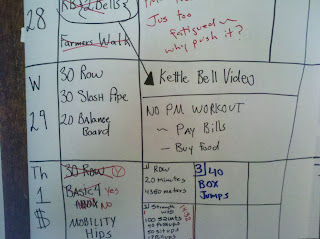 28
Bells
Farmers Walk
Jus too
fatigued ~
why push it?
W
29
30 Row
30 Slosh Pipe
20 Balance
Board
Kettle Bell Video
NO PM WORKOUT
~ Pay Bills
~ Buy Food
Th
1
$
30 Row Y
Basic 4 Yes
NO
MOBILITY
HIPS
Row
20 minutes
4380 meters
Strength
WOD
100 Squats
50 Situps
3/40
BOX
JUMPS